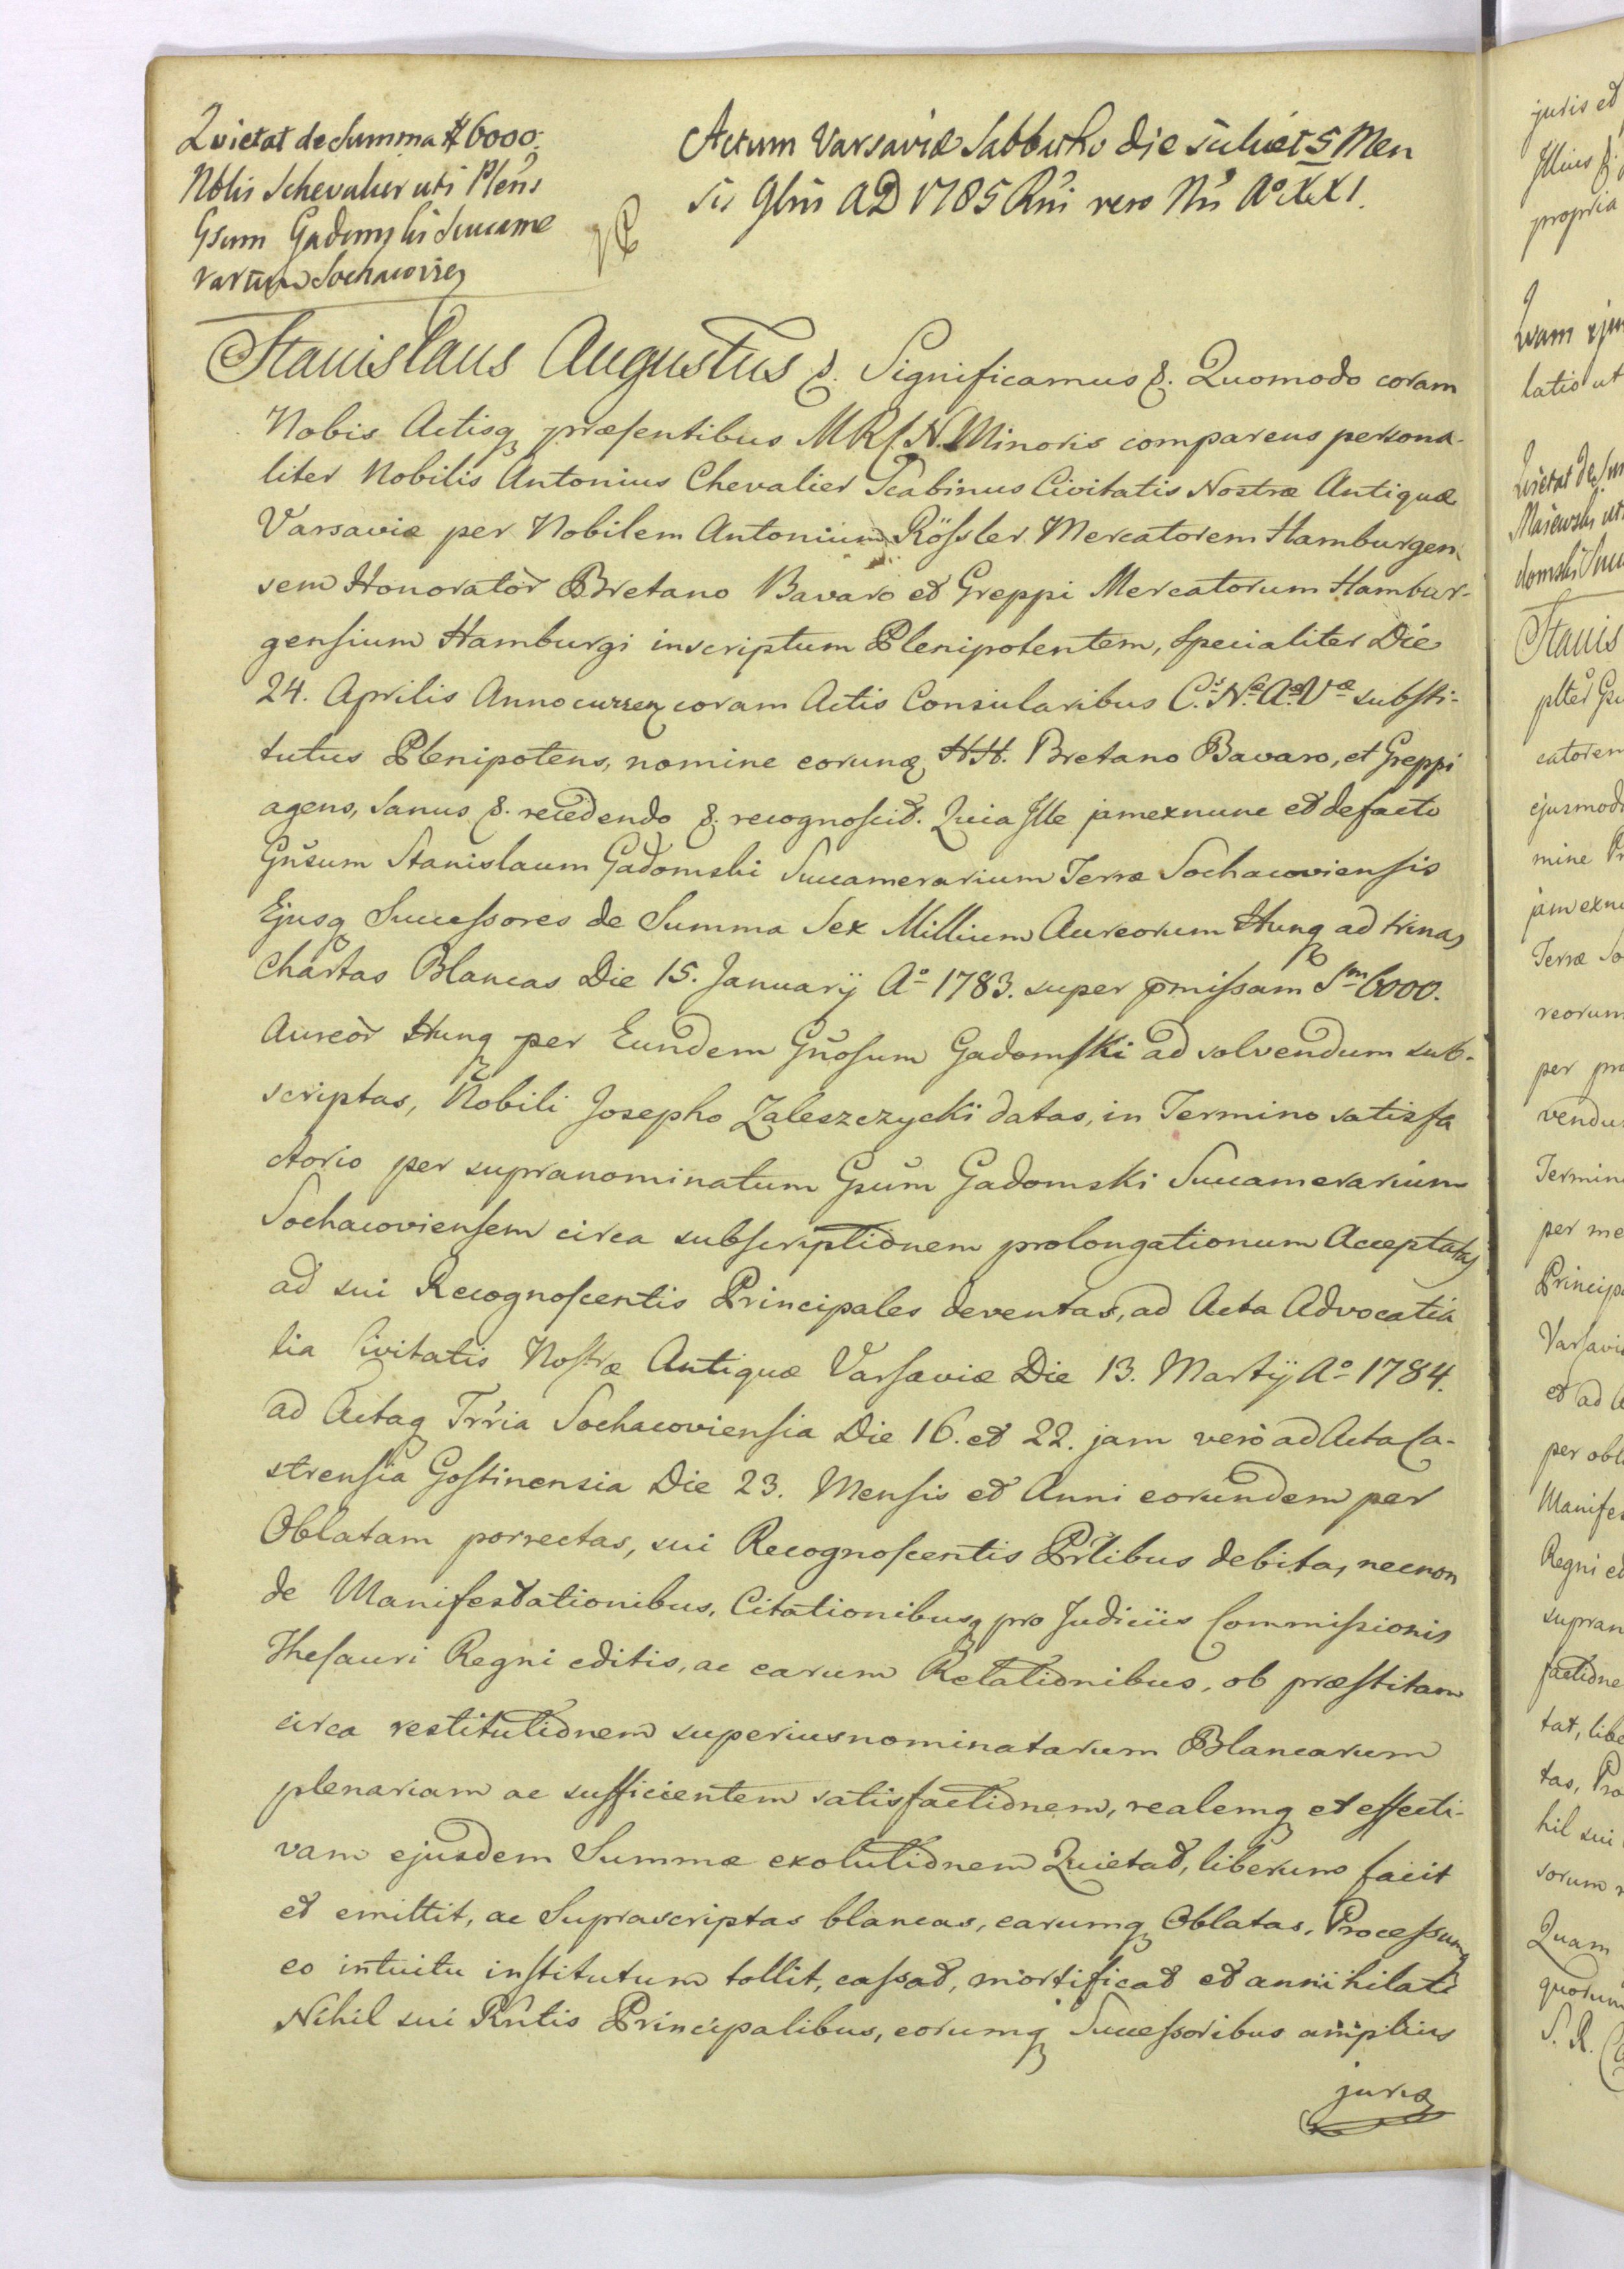 Quietat de Summa # 6000.
Nblis Schevalier uti Plens
Gsum Gadomski Succame
rarium Sochacovien
Actum Varsaviæ Sabbatho die scilicet 5 Men
sis 9bris AD 1785 Rni vero Nri Aº XXI.
Stanislaus Augustus &. Significamus &. Quomodo coram
Nobis Actisq præsentibus MRC.N. Minoris comparens persona-
liter Nobilis Antonius Chevalier Scabinus Civitatis Nostræ Antiquæ
Varsaviæ per Nobilem Antonium Rössler Mercatorem Hamburgen
sem Honorator Bretano Bavaro et Greppi Mercatorum Hambur-
gensium Hamburgi inscriptum Plenipotentem, specialiter Die
24. Aprilis Anno curren coram Actis Consularibus C.s N.æ A.æ V.æ substi-
tutus Plenipotens, nomine eorunq HH. Bretano Bavaro, et Greppi
agens, Sanus &. recedendo &. recognoscit. Quia Ille jamexnunc et defacto
Gnsum Stanislaum Gadomski Succamerarium Terræ Sochacoviensis
Ejusq Successores de Summa Sex Millium Aureorum Hung ad trinas
Chartas Blancas Die 15. Januarij Aº 1783. super pmissam Sm 6000.
Aureor Hung per Eundem Gnosum Gadomski ad solvendum sub-
scriptas, Nobili Josepho Zaleszczycki datas, in Termino satisfa
ctorio per supranominatum Gsum Gadomski Succamerarium
Sochacoviensem circa subscriptionem prolongationum Acceptatas
ad sui Recognoscentis Principales deventas, ad Acta Advocatia
lia Civitatis Nostræ Antiquæ Varsaviæ Die 13. Martij Aº 1784.
ad Actaq Trria Sochacoviensia Die 16. et 22. jam vero ad Acta Ca-
strensia Gostinensia Die 23. Mensis et Anni eorundem per
Oblatam porrectas, sui Recognoscentis Prlibus debita, necnon
de Manifestationibus, Citationibusq pro Judiciis Commissionis
Thesauri Regni editis, ac earum Relationibus, ob præstitam
circa restitutionem superiusnominatarum Blancarum
plenariam ac sufficientem satisfactionem, realemq et effecti-
vam ejusdem Summæ exolutionem Quietat, liberum facit
et emittit, ac Suprascriptas blancas, earumq Oblatas, Processumq
eo intuitu institutum tollit, cassat, mortificat et annihilat
Nihil sui Rntis Principalibus, eorumq Successoribus amplius
juris
juris et
Illius
propria
Quam
latio ut
Quietat de
Majewski ut
domski Suc
Stanis
catorem
ejusmodi
mine Pr
jam exnu
Terræ So
reorum
per pra
vendu
Termin
per me
Principa
Varsavi
et ad A
per obl
Manifes
Regni ed
supran
factione
tat, libe
tas, Pro
hil sui
sorum
Quam
quorum
S. R.